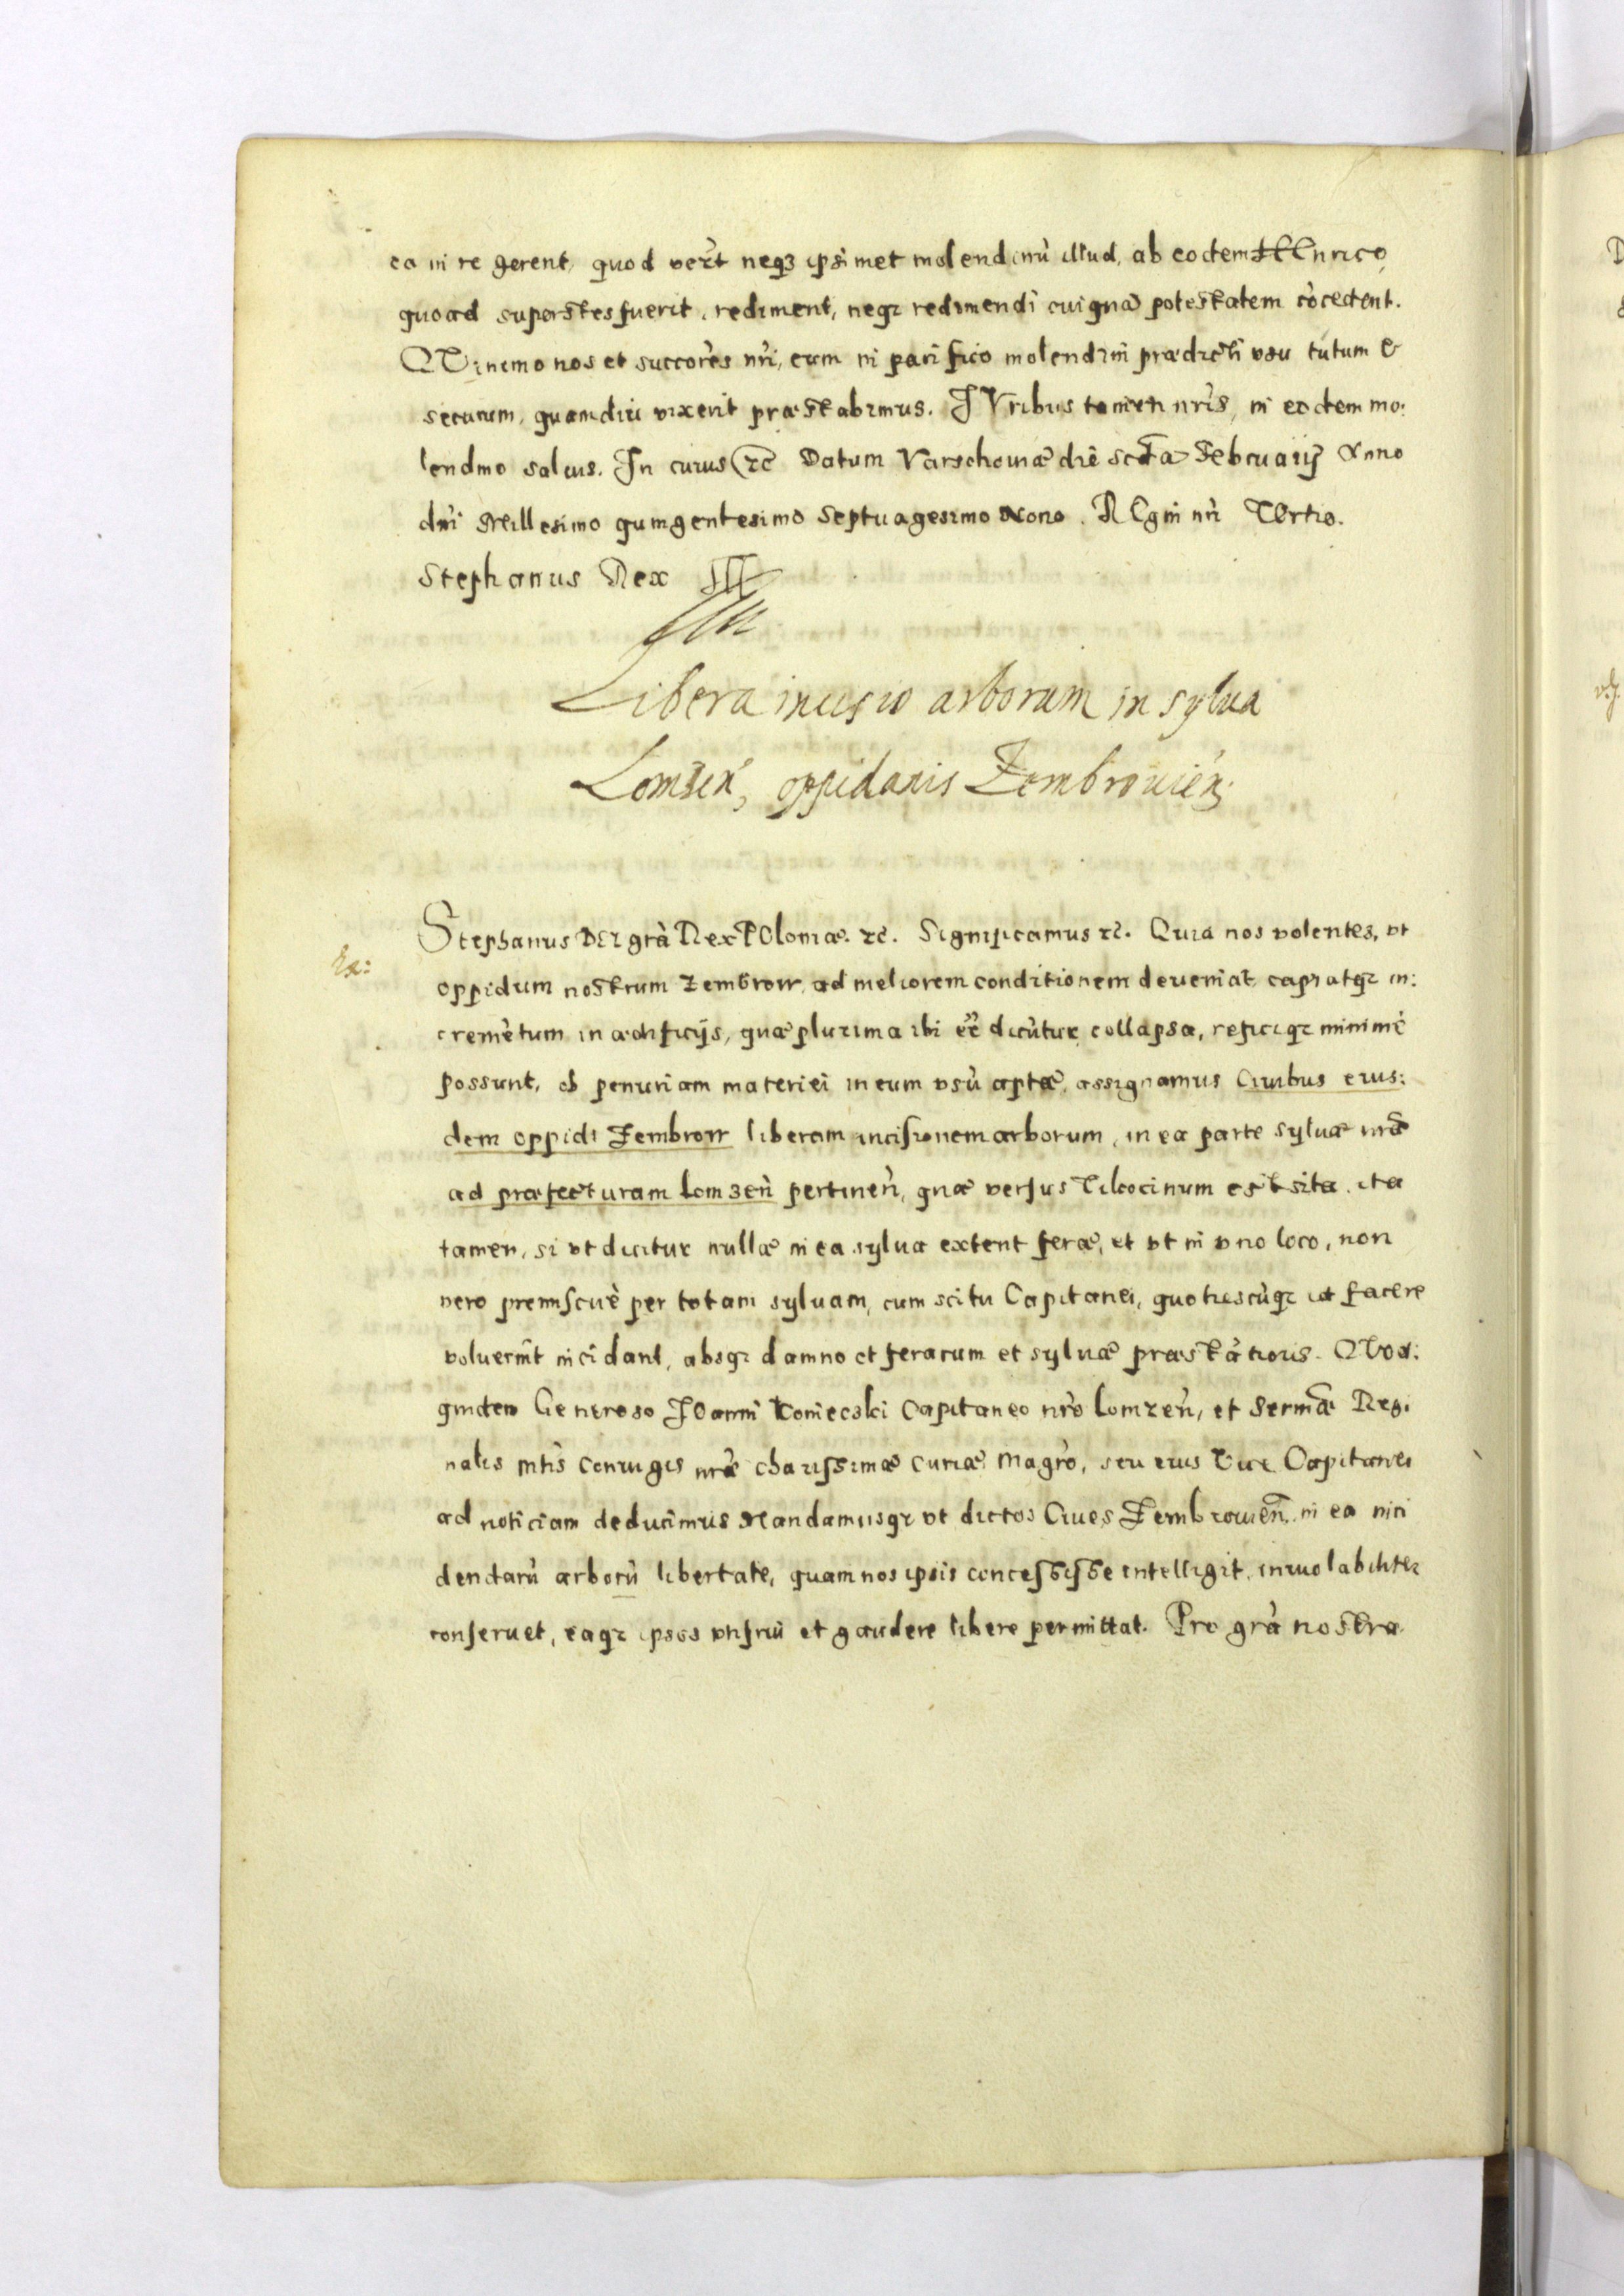 ea in re gerent, quod verò neq3 ipsimet molendinù illud, ab eodem HEnrico,
quoad superstes fuerit, rediment, neqz redimendi cuiquã potestatem còcedent.
QVinemo nos et succorès nrì, eum in pacifico molendini prædicti vsu tutum &
securum, quamdiu vixerit præstabimus. IVribus tamen nrìs, in eodem mo:
lendino saluis. In cuius rc̃ Datum Varschouiæ die sctã Februarij Anno
dnì Millesimo quingentesimo Septuagesimo Nono. REgni nrì TErtio.
Stephanus Rex
Libera incisio arborum in sylua
Lomzen̄, oppidanis Zembrouien̄,
Stephanus DEI grà Rex POloniæ. rc̃. Significamus rc̃. Quia nos volentes, vt
oppidum nostrum Zembrow, ad meliorem conditionem deueniat, capiatqz in:
cremètum in ædificijs, quæ plurima ibi eẽ dicùtur collapsa, reficiqz minimè
possunt, ob penuriam materiei in eum vsù aptæ, assignamus Ciuibus eius:
dem oppidi Zembrow liberam incisionem arborum, in ea parte syluæ nrẽ
ad præfecturam Lomzen̄ pertinen̄, quæ versus Tilcocinum est sita. ita
tamen, si vt dicitur nullæ in ea sylua extent feræ, et vt in vno loco, non
vero premiscuè per totam syluam, cum scitu Capitanei, quotiescùqz id facere
voluerint incidant, absqz damno et ferarum et syluæ præstàtioris. QVod:
quidem Generoso IOanni Koniecski Capitaneo nrò Lomzen̄, et Sermæ̃ Regi
nalis Mtìs Coniugis nræ̀ charissimæ Curiæ Magrò, seu eius Vice Capitanei
ad noticiam deducimus Mandamusqz vt dictos Ciues Zembrouien̄, in ea inci
dendarù arborù libertate, quam nos ipsis concessisse intelligit, inuiolabiliter
conseruet, eaqz ipsos vti frui et gaudere libere permittat. Pro grà nostra